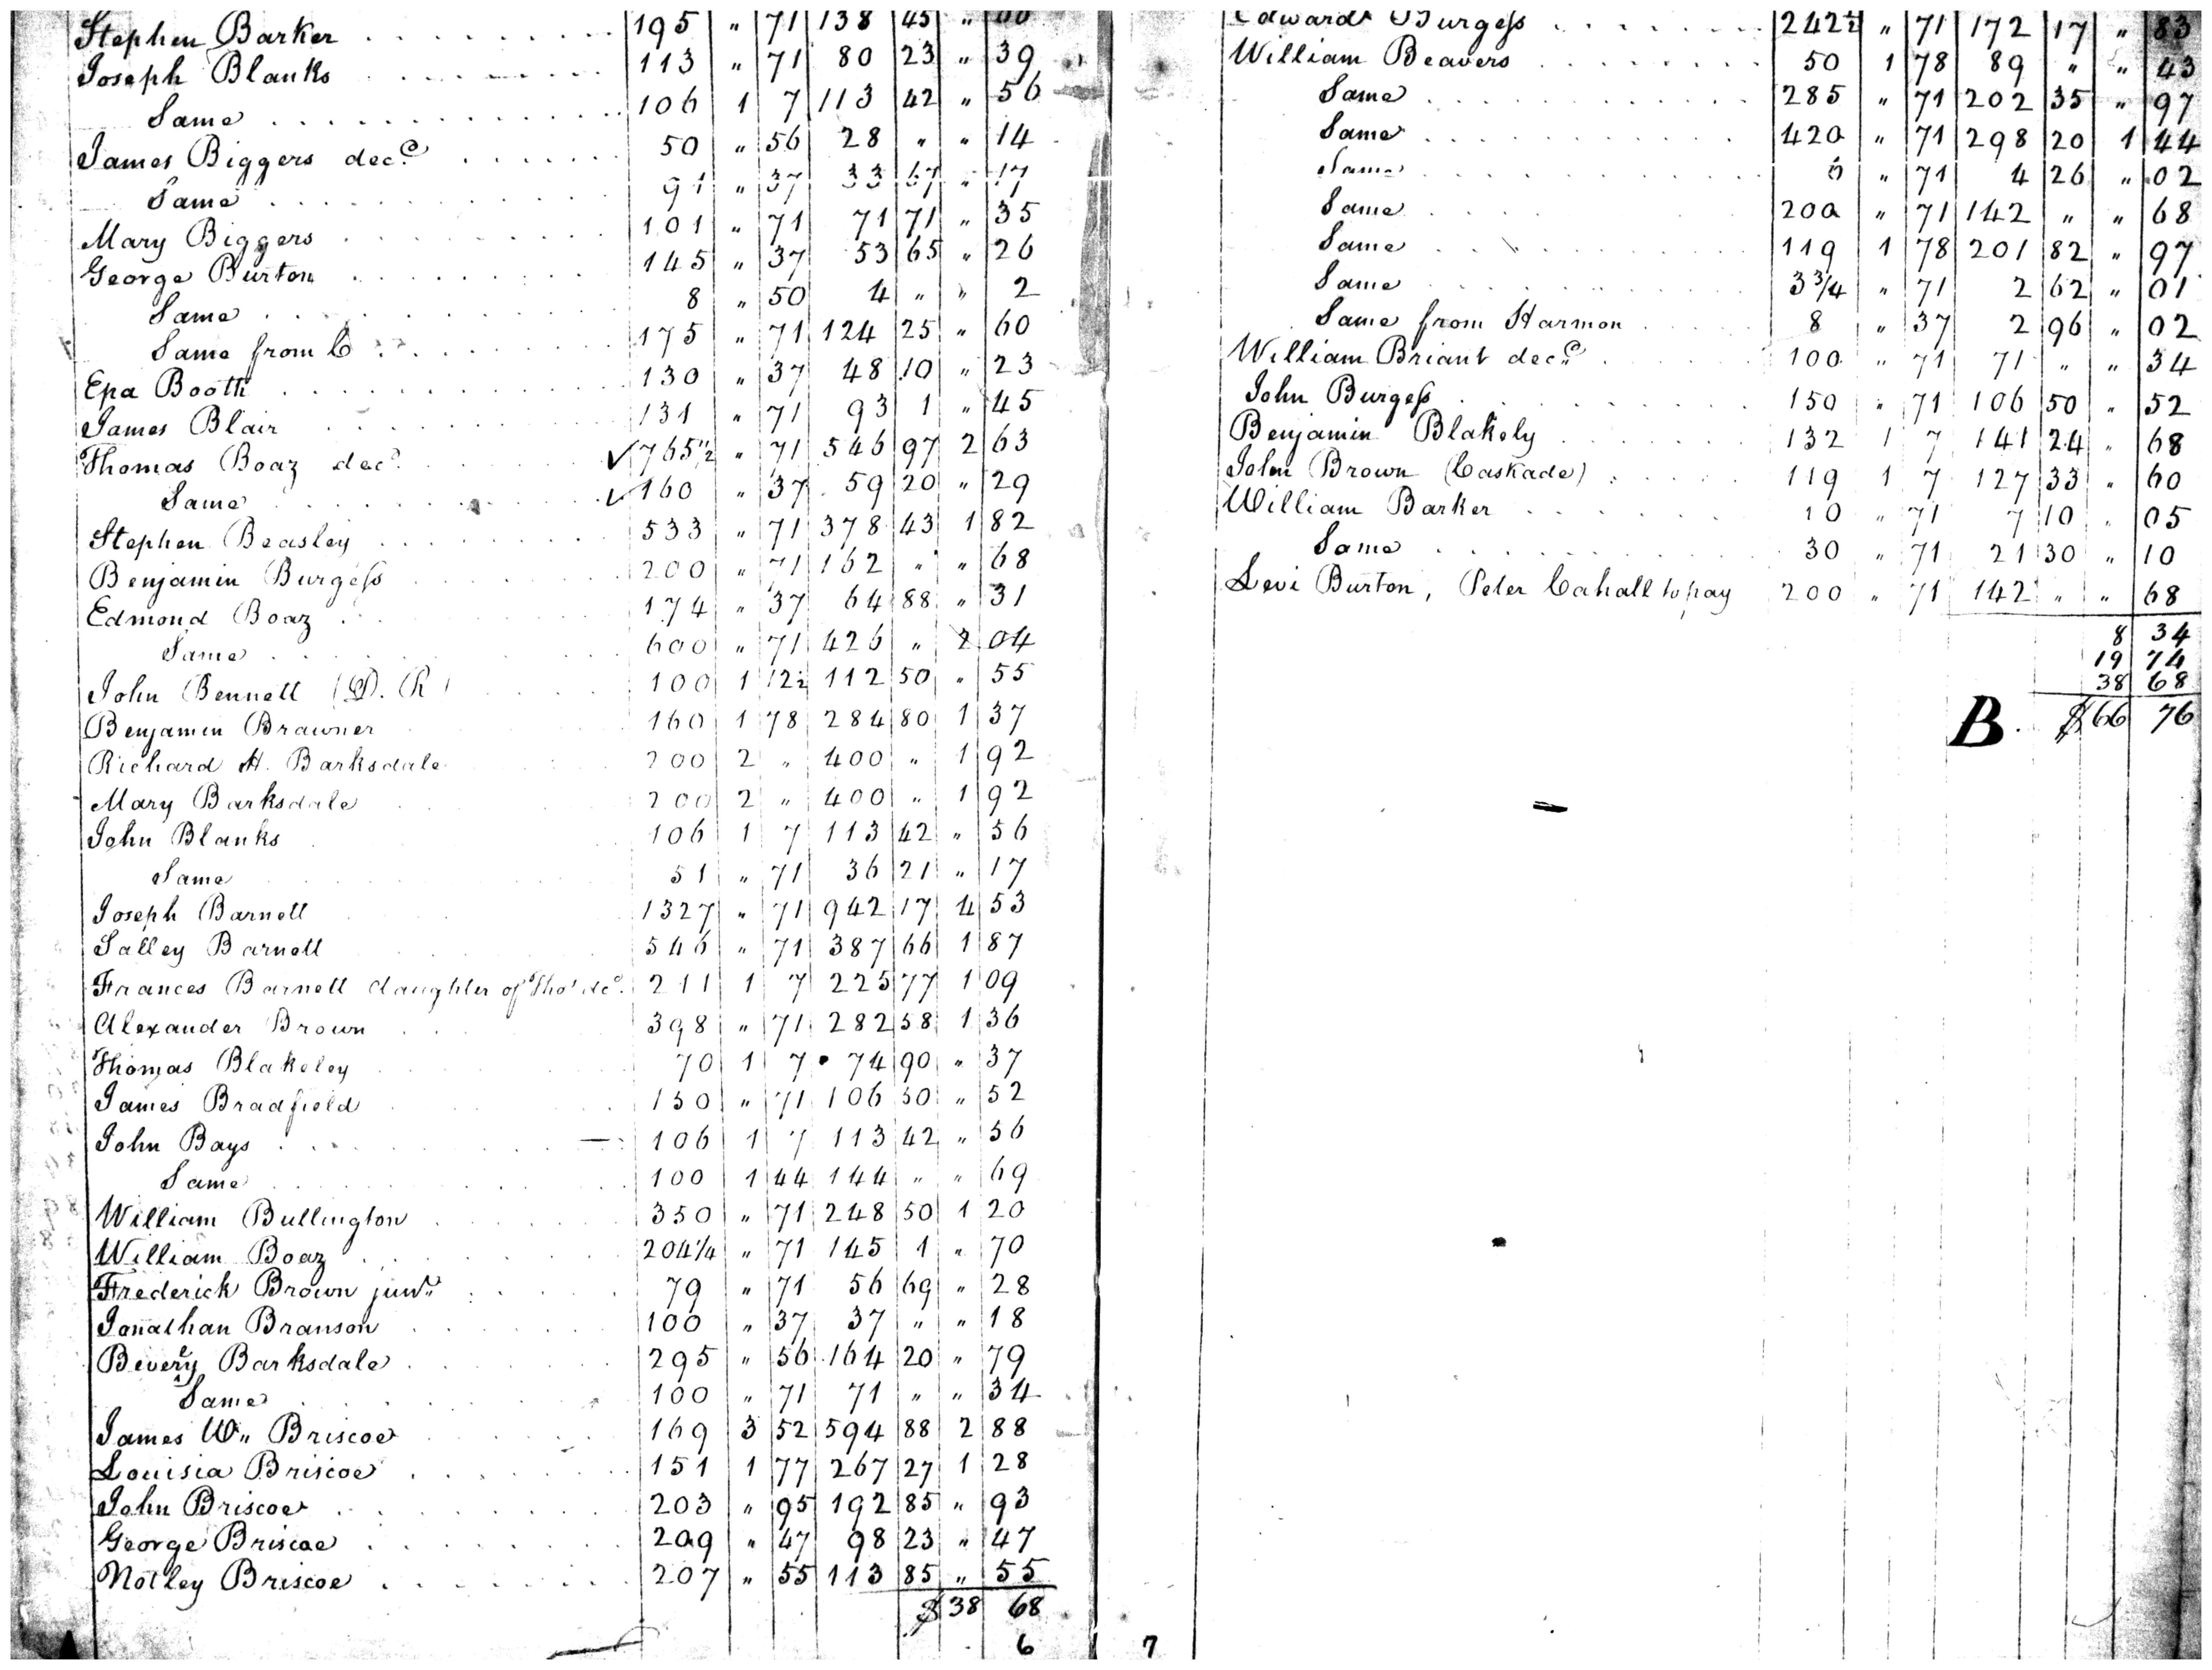 Stephen Barker 195 " 71 138 45 "
Joseph Blanks 113 " 71 80 23 " 39
Same 106 1 7 113 42 " 56
James Biggers decd 50 " 56 28 " " 14
Same 91 " 37 33 67 " 17
Mary Biggers 101 " 71 71 71 " 35
George Burton 145 " 37 53 65 " 26
Same 8 " 50 4 " " 2
Same from C 175 " 71 124 25 " 60
Epa Booth 130 " 37 48 10 " 23
James Blair 131 " 71 93 1 " 45
Thomas Boaz decd ✓ 765 1/2 " 71 546 97 2 63
Same ✓ 160 " 37 59 20 " 29
Stephen Beasley 533 " 71 378 43 1 82
Benjamin Burgess 200 " 71 162 " " 68
Edmond Boaz 174 " 37 64 88 " 31
Same 600 " 71 426 " 2 04
John Bennett (D. R) 100 1 12½ 112 50 " 55
Benjamin Brawner 160 1 78 284 80 1 37
Richard H. Barksdale 200 2 " 400 " 1 92
Mary Barksdale 200 2 " 400 " 1 92
John Blanks 106 1 7 113 42 " 56
Same 51 " 71 36 21 " 17
Joseph Barnett 1327 " 71 942 17 4 53
Salley Barnett 546 " 71 387 66 1 87
Frances Barnett daughter of Tho' dcd. 211 1 7 225 77 1 09
Alexander Brown 398 " 71 282 58 1 36
Thomas Blakeley 70 1 7 74 90 " 37
James Bradfield 150 " 71 106 50 " 52
John Bays 106 1 7 113 42 " 56
Same 100 1 44 144 " " 69
William Bullington 350 " 71 248 50 1 20
William Boaz 204 1/4 " 71 145 1 " 70
Frederick Brown junr 79 " 71 56 69 " 28
Jonathan Branson 100 " 37 37 " " 18
Bevery Barksdale 295 " 56 164 20 " 79
Same 100 " 71 71 " " 34
James W" Briscoe 169 3 52 594 88 2 88
Louisia Briscoe 151 1 77 267 27 1 28
John Briscoe 203 " 95 192 85 " 93
George Briscoe 209 " 47 98 23 " 47
Notley Briscoe 207 " 55 113 85 " 55
$ 38 68
6
Edward Burgess 242½ " 71 172 17 " 83
William Beavers 50 1 78 89 " " 43
Same 285 " 71 202 35 " 97
Same 420 " 71 298 20 1 44
Same " 71 4 26 " 02
Same 200 " 71 142 " " 68
Same 119 1 78 201 82 " 97
Same 3 3/4 " 71 2 62 " 01
Same from Harmon 8 " 37 2 96 " 02
William Briant decd 100 " 71 71 " " 34
John Burgess 150 " 71 106 50 " 52
Benjamin Blakely 132 1 7 141 24 " 68
John Brown (Caskade) 119 1 7 127 33 " 60
William Barker 10 " 71 7 10 " 05
Same 30 " 71 21 30 " 10
Levi Burton, Peter Cahall to pay 200 " 71 142 " " 68
8 34
19 74
38 68
B. $ 66 76
7